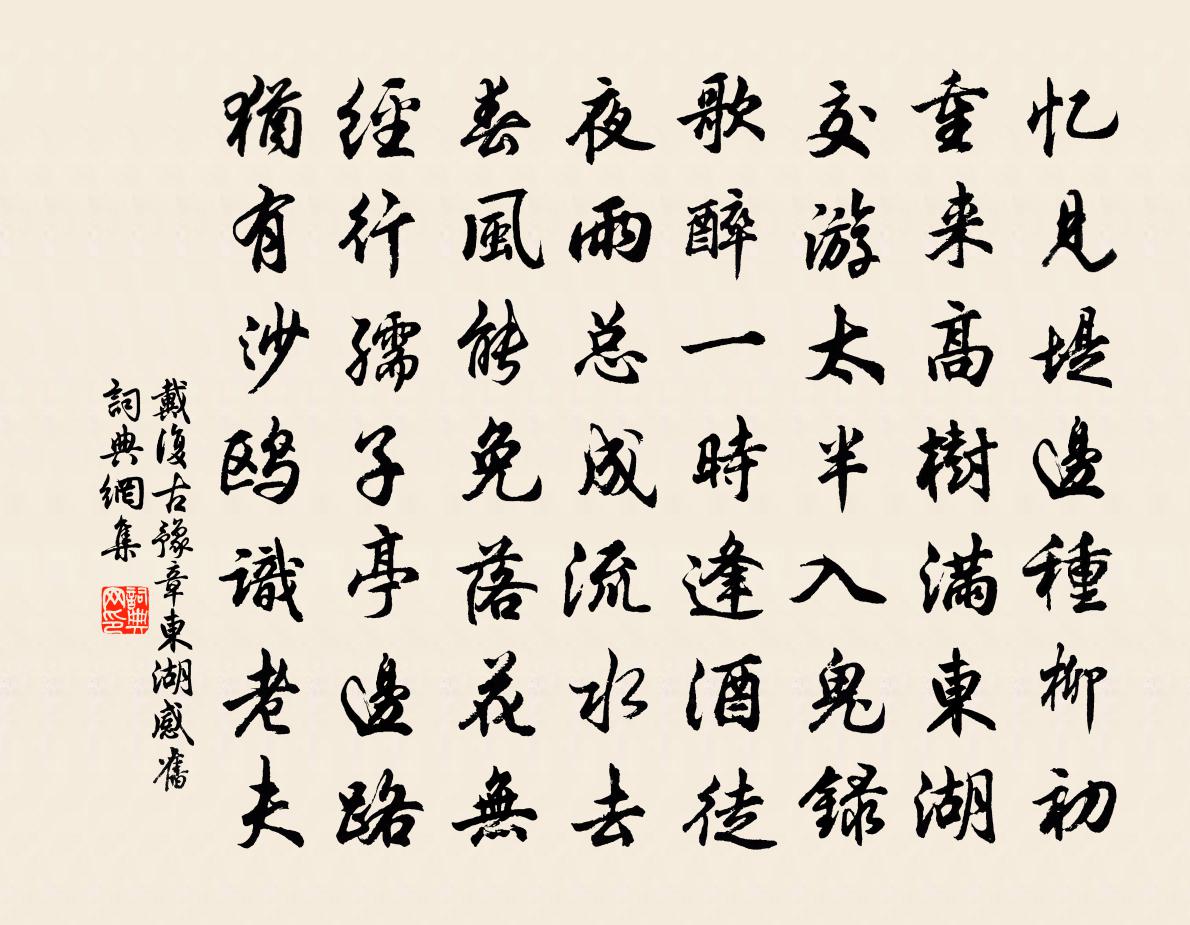 忆見堤邊種柳初
重来高樹滿東湖
交游太半入鬼録
歌醉一時逢酒徒
夜雨总成流水去
春風能免落花無
經行孺子亭邊路
猶有沙鸥識老夫
戴復古豫章東湖感舊
詞典網集
詞典
网印